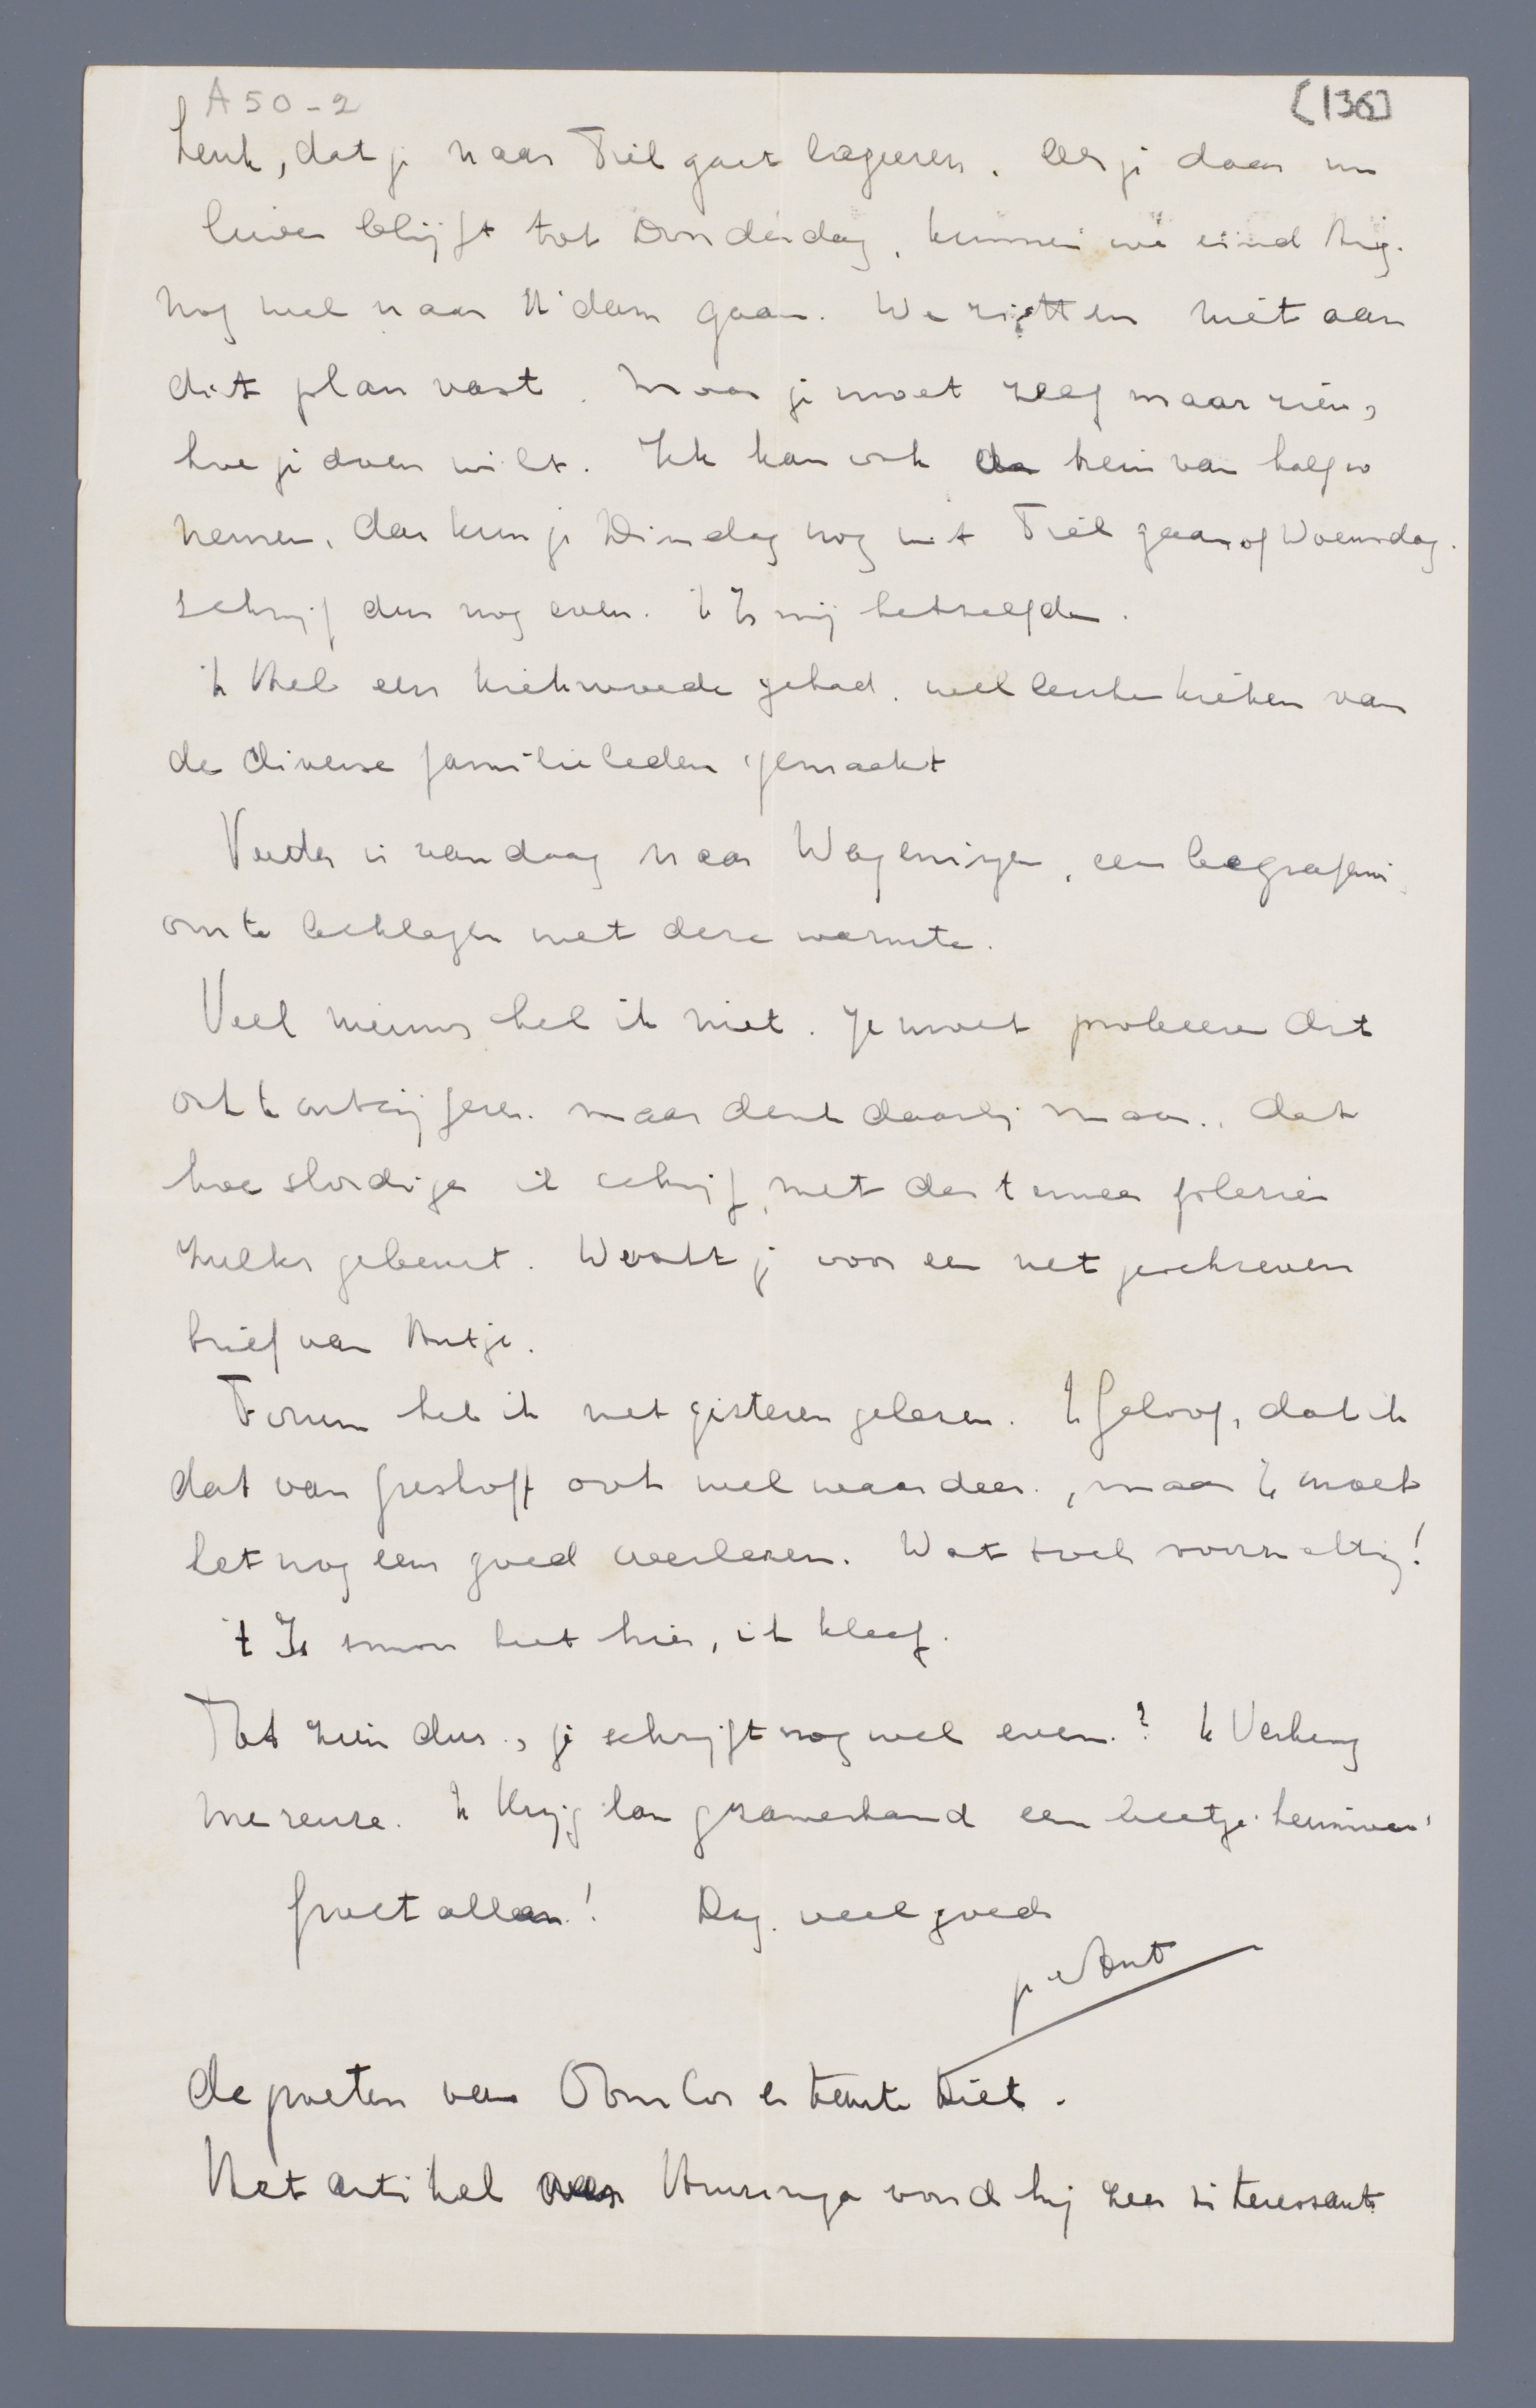 A 50-2
[136]
Leuk, dat je naar Tiel gaat logeeren. Als je daar nu
liever blijft tot Donderdag, kunnen we eind Aug.
nog wel naar A'dam gaan. We zitten niet aan
dit plan vast. Maar je moet zelf maar zien,
hoe je doen wilt. Ik kan ook de trein van half 10
nemen, dan kun je Dinsdag nog uit Tiel gaan of Woensdag.
Schrijf dus nog even. 't Is mij hetzelfde.
ik Heb een kiekwoede gehad. veel leuke kieken van
de diverse familieleden gemaakt
Vader is vandaag naar Wageningen, een begrafenis
om te beklagen met deze warmte.
Veel nieuws heb ik niet. Je moet probeeren dit
ook te ontcijferen. maar denk daarbij maar, dat
hoe slordiger ik schrijf, met des te meer plezier
zulks gebeurt. Wacht je voor een net geschreven
brief van Antje.
Forum heb ik met gisteren gelezen. Ik Geloof, dat ik
dat van Greshoff ook wel waardeer, maar ik moet
het nog eens goed overlezen. Wat voornaltig!
't Is smoor heet hier, ik kleef.
Tot ziens dus, je schrijft nog wel even? Ik Verheug
me reuze. Ik Krijg langzamerhand een beetje heimwee!
Groet allen! Dag. veel goeds
je Ant
de poeten van Oom Cor erkende Piet.
Het artikel over Huizinga vond hij zeer interessant